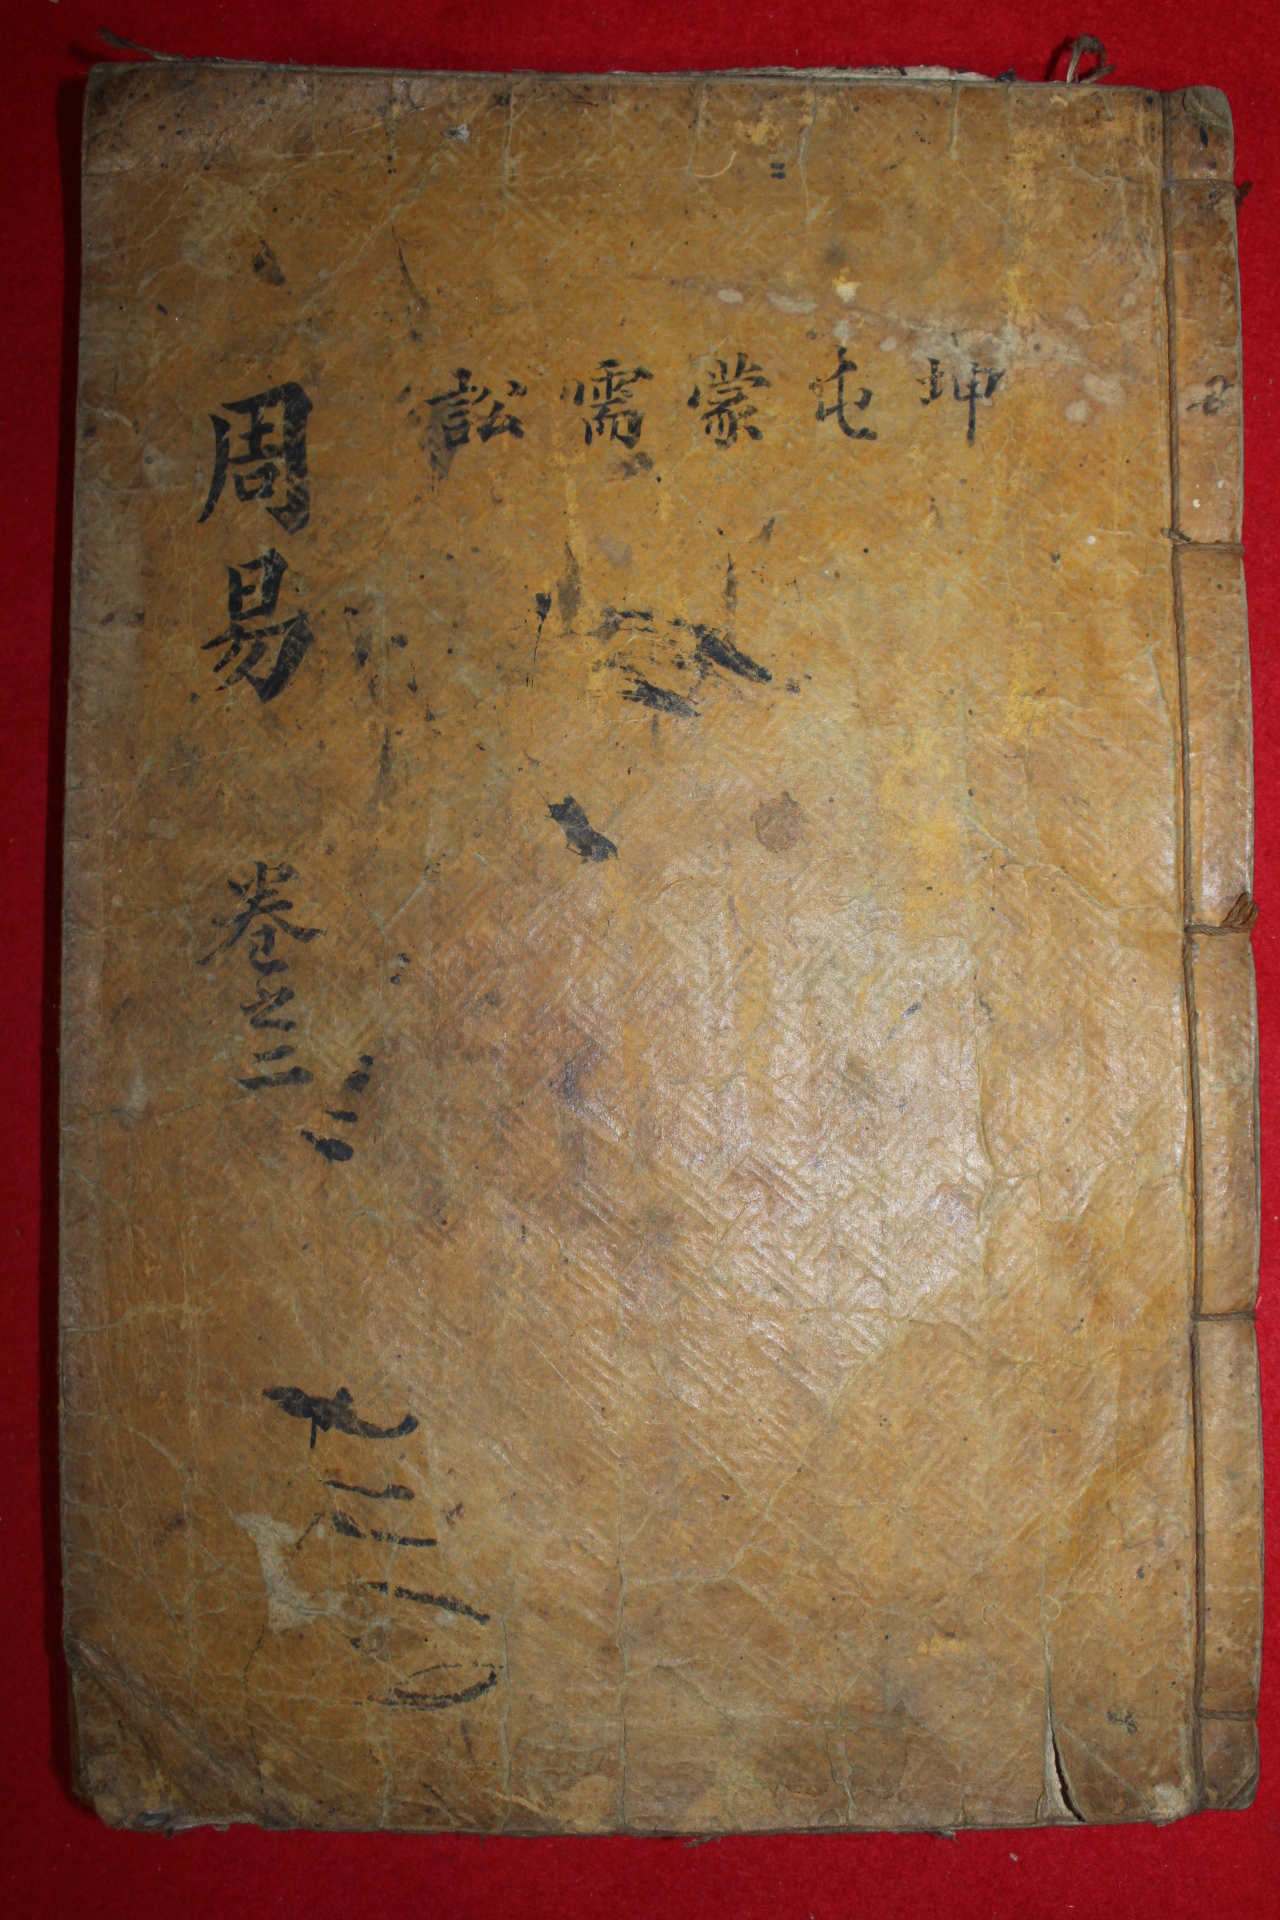 坤 屯 蒙 需 訟
周易 卷之二